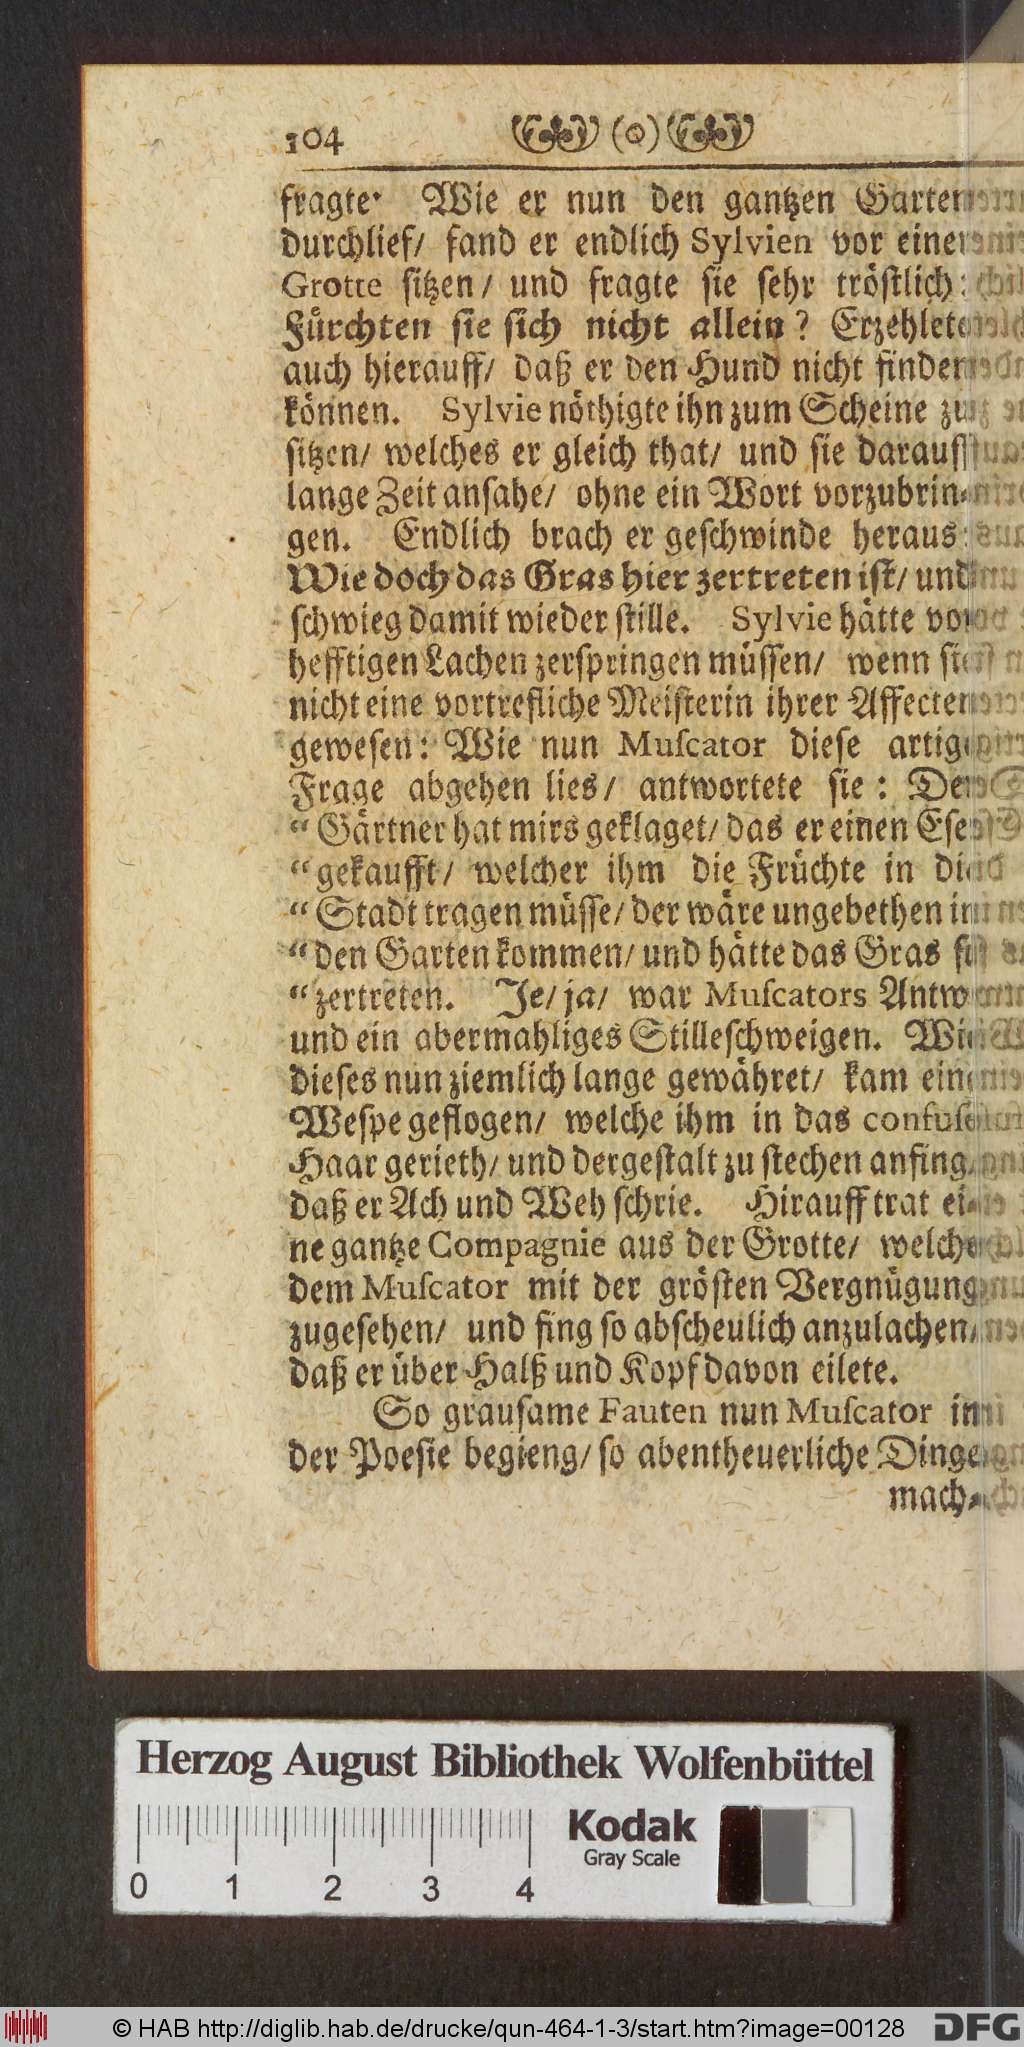 104 (o)
fragte. Wie er nun den gantzen Garten
durchlief/ fand er endlich Sylvien vor einer
Grotte sitzen/ und fragte sie sehr tröstlich:
Fürchten sie sich nicht allein? Erzehlete
auch hierauff/ daß er den Hund nicht finden
können. Sylvie nöthigte ihn zum Scheine zu
sitzen/ welches er gleich that/ und sie darauf
lange Zeit ansahe/ ohne ein Wort vorzubrin-
gen. Endlich brach er geschwinde heraus:
Wie doch das Gras hier zertreten ist/ und
schwieg damit wieder stille. Sylvie hätte vor
hefftigen Lachen zerspringen müssen/ wenn sie
nicht eine vortrefliche Meisterin ihrer Affecten
gewesen: Wie nun Muscator diese artige
Frage abgehen lies/ antwortete sie: Der
“Gärtner hat mirs geklaget/ das er einen Esel
“gekaufft/ welcher ihm die Früchte in die
“Stadt tragen müsse/ der wäre ungebethen in
“den Garten kommen/ und hätte das Gras so
“zertreten. Je/ ja/ war Muscators Antwort
und ein abermahliges Stilleschweigen. Wie
dieses nun ziemlich lange gewähret/ kam eine
Wespe geflogen/ welche ihm in das confuse
Haar gerieth/ und dergestalt zu stechen anfing/
daß er Ach und Weh schrie. Hirauff trat ei-
ne gantze Compagnie aus der Grotte/ welche
dem Muscator mit der grösten Vergnügung
zugesehen/ und fing so abscheulich anzulachen/
daß er über Halß und Kopf davon eilete.
So grausame Fauten nun Muscator in
der Poesie begieng/ so abentheuerliche Dinge
mach-
Herzog August Bibliothek Wolfenbüttel
Kodak
Gray Scale
0 1 2 3 4
© HAB http://diglib.hab.de/drucke/qun-464-1-3/start.htm?image=00128
DFG